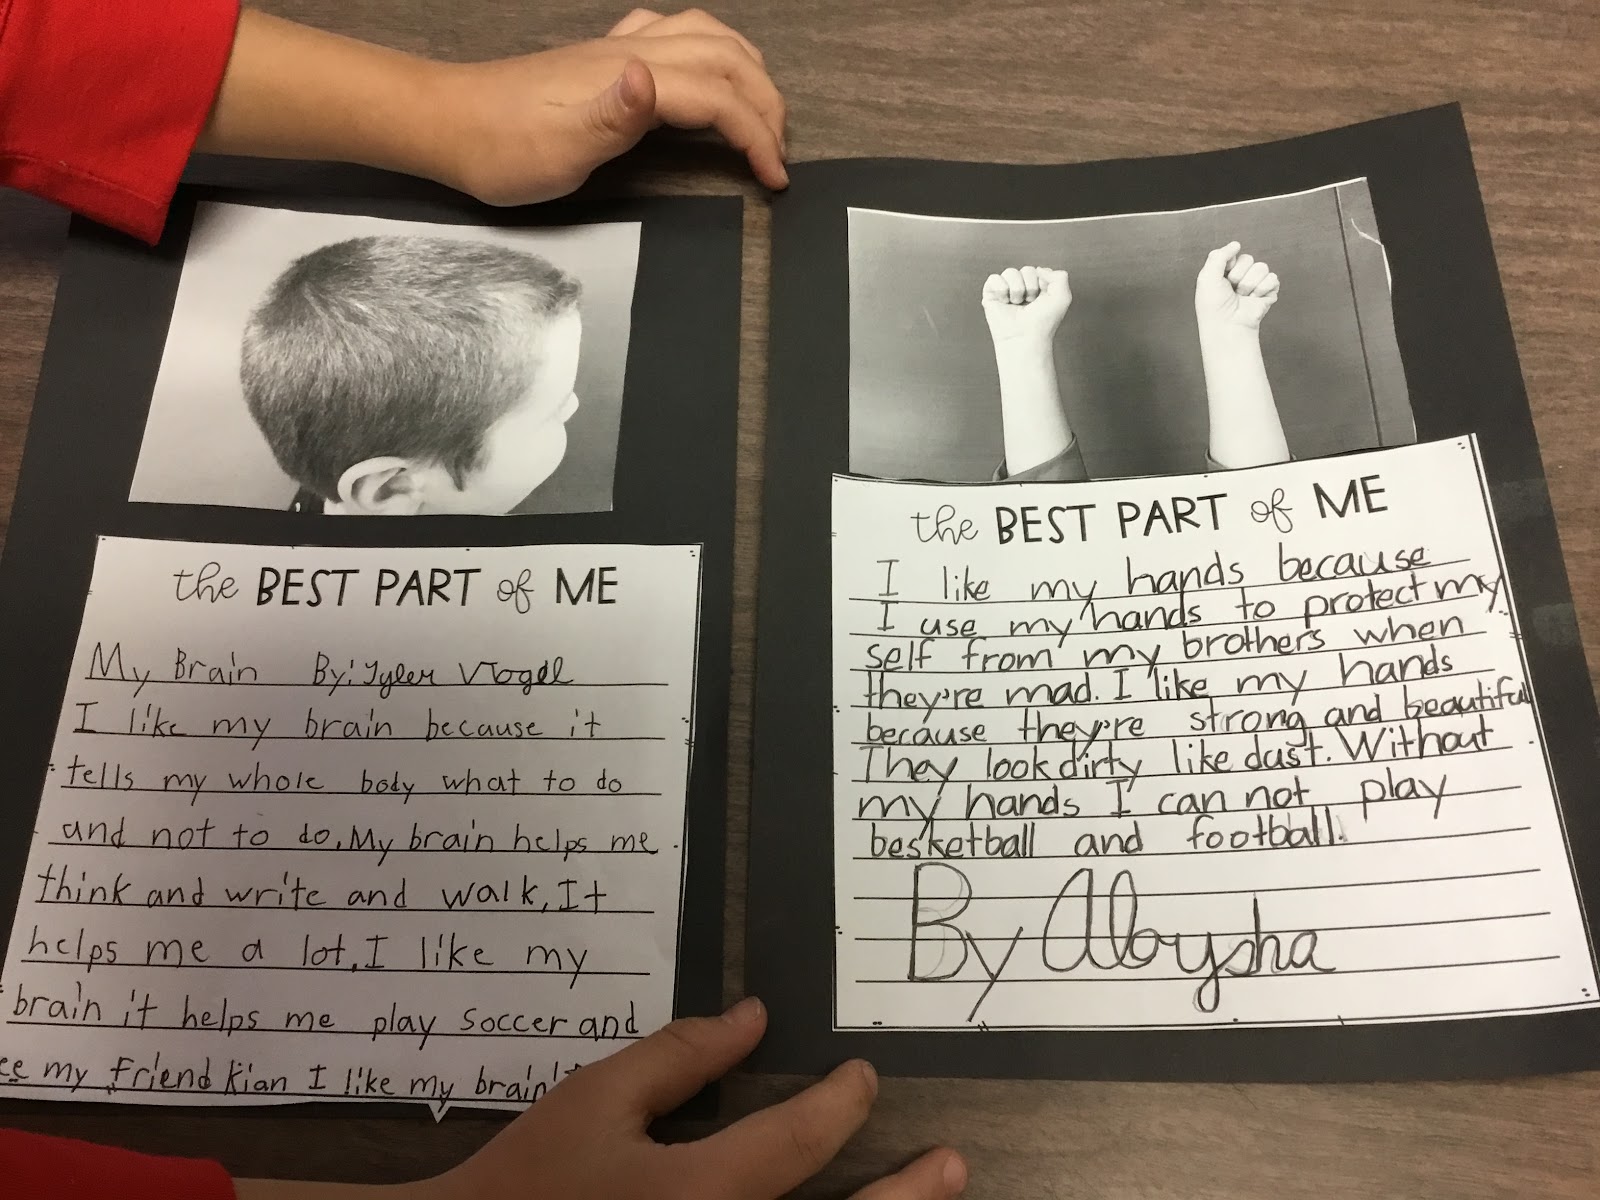 the BEST PART of ME
My Brain By: Tyler Vogel
I like my brain because it
tells my whole body what to do
and not to do. My brain helps me
think and write and walk. It
helps me a lot. I like my
brain it helps me play soccer and
my friend Kian I like my brain!
the BEST PART of ME
I like my hands because
I use my hands to protect my
self from my brothers when
they're mad. I like my hands
because they're strong and beautiful
They look dirty like dust. Without
my hands I can not play
besketball and football.
By Aloysha